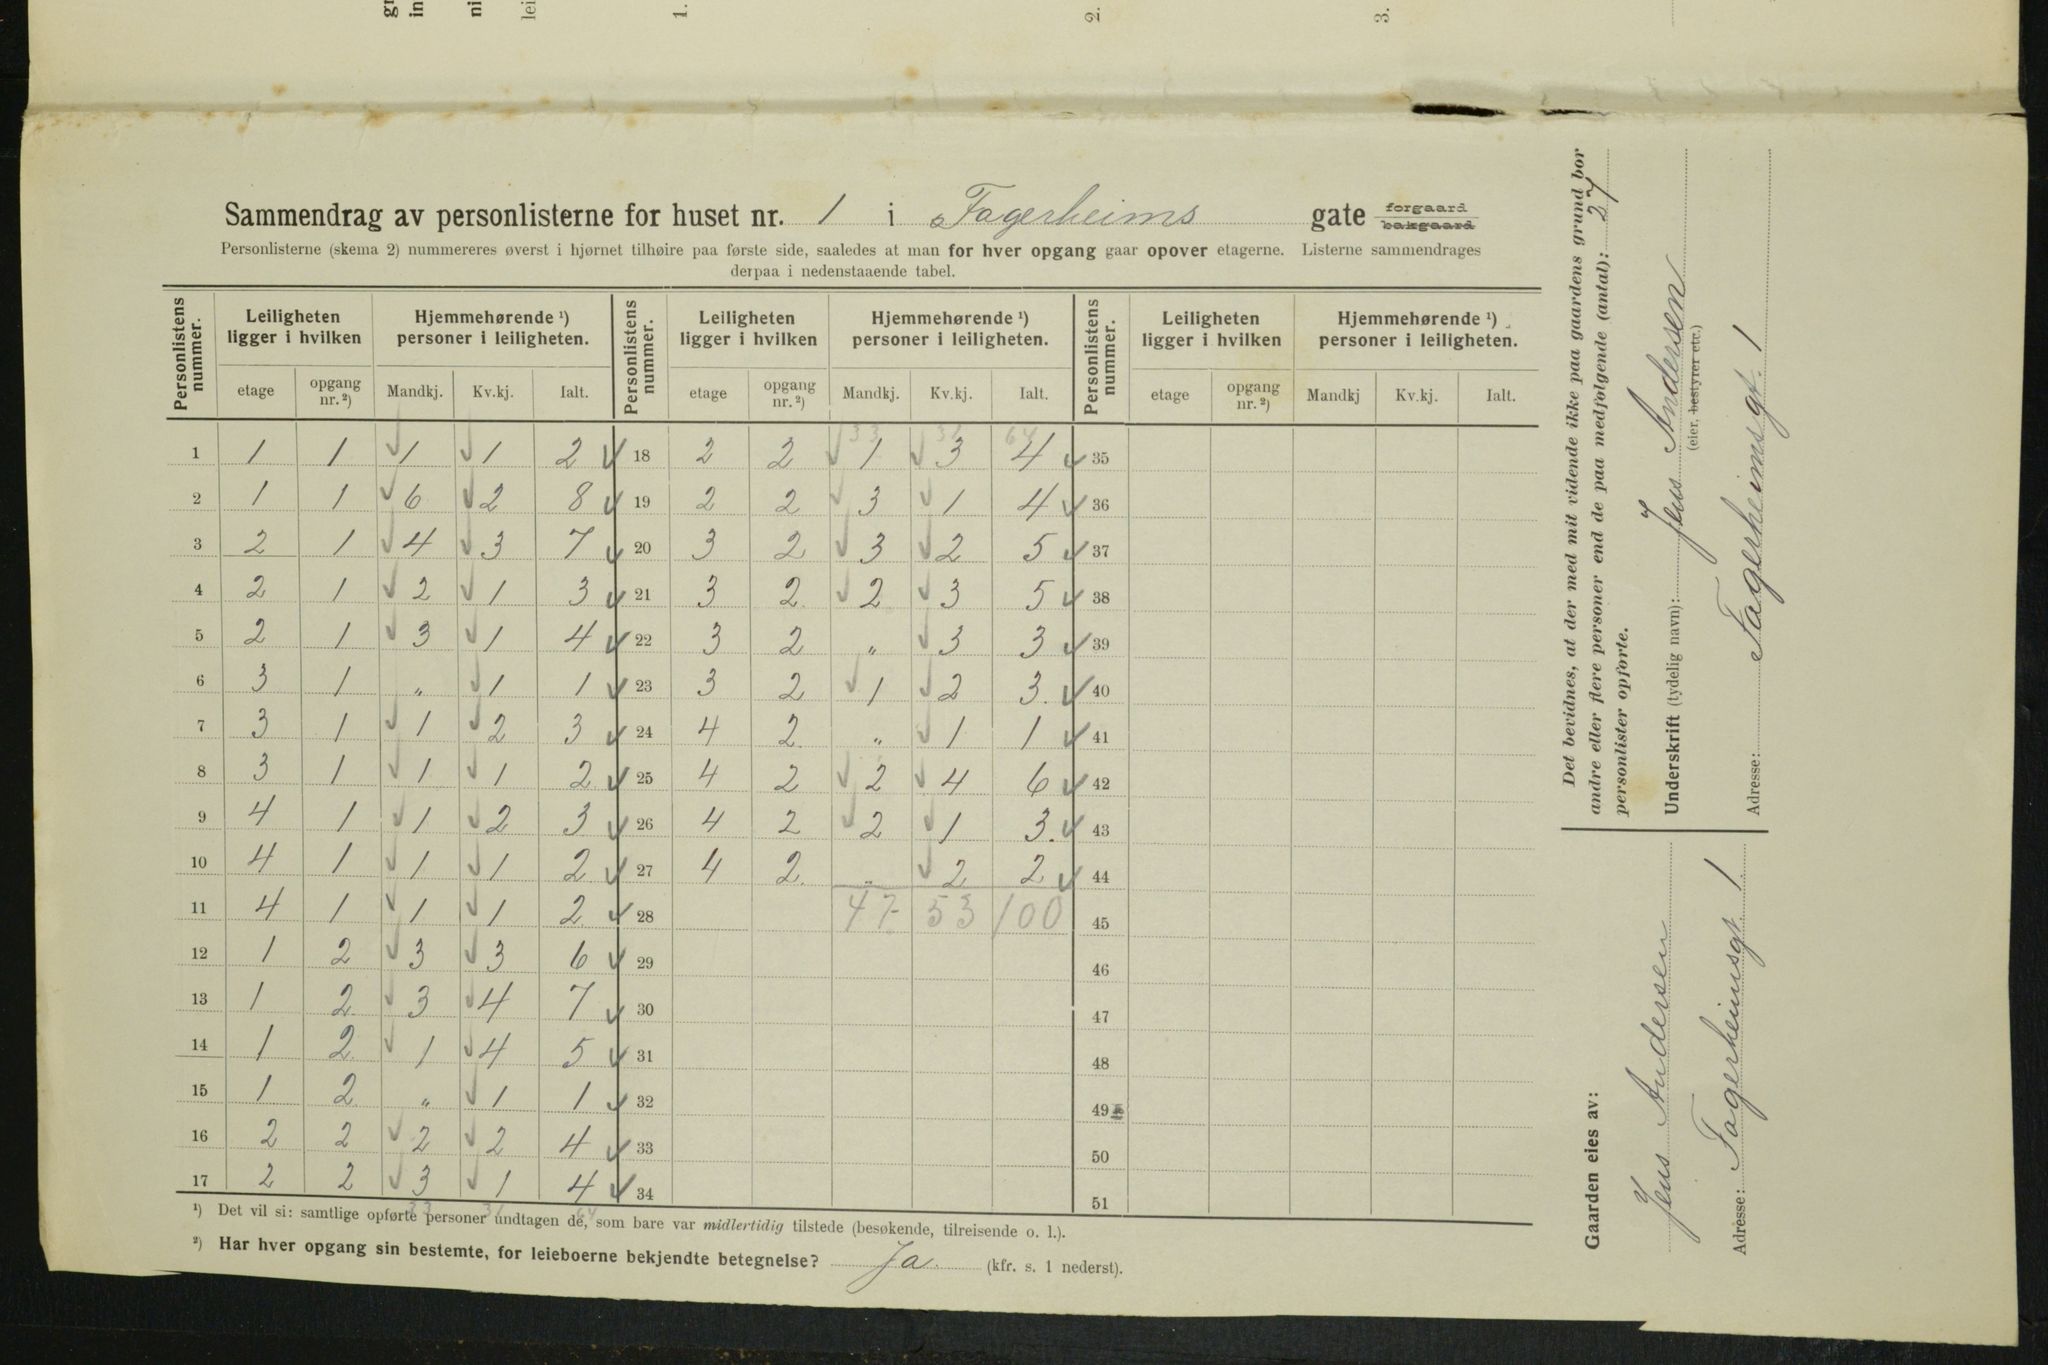 gr
in
ni
lei
1.
2.
3.
Sammendrag av personlisterne for huset nr. 1 i Fagerheims gate forgaard
bakgaard
Personlisterne (skema 2) nummereres øverst i hjørnet tilhøire paa første side, saaledes at man for hver opgang gaar opover etagerne. Listerne sammendrages
derpaa i nedenstaaende tabel.
Personlistens nummer. Leiligheten ligger i hvilken Hjemmehørende ¹) personer i leiligheten. Personlistens nummer. Leiligheten ligger i hvilken Hjemmehørende ¹) personer i leiligheten. Personlistens nummer. Leiligheten ligger i hvilken Hjemmehørende ¹) personer i leiligheten.
etage opgang nr. ²) Mandkj. Kv.kj. Ialt. etage opgang nr. ²) Mandkj. Kv.kj. Ialt. etage opgang nr. ²) Mandkj Kv.kj. Ialt.
33 31 64
1 1 1 1 1 2 18 2 2 1 3 4 35
2 1 1 6 2 8 19 2 2 3 1 4 36
3 2 1 4 3 7 20 3 2 3 2 5 37
4 2 1 2 1 3 21 3 2 2 3 5 38
5 2 1 3 1 4 22 3 2 „ 3 3 39
6 3 1 „ 1 1 23 3 2 1 2 3. 40
7 3 1 1 2 3 24 4 2 „ 1 1 41
8 3 1 1 1 2 25 4 2 2 4 6 42
9 4 1 1 2 3 26 4 2 2 1 3. 43
10 4 1 1 1 2 27 4 2 „ 2 2 44
11 4 1 1 1 2 28 47 53 100 45
12 1 2 3 3 6 29 46
13 1 2 3 4 7 30 47
14 1 2 1 4 5 31 48
15 1 2 „ 1 1 32 49
16 2 2 2 2 4 33 50
17 2 2 3 1 4 34 51
33 31 64
¹) Det vil si: samtlige opførte personer undtagen de, som bare var midlertidig tilstede (besøkende, tilreisende o. l.).
²) Har hver opgang sin bestemte, for leieboerne bekjendte betegnelse? Ja. (kfr. s. 1 nederst).
Det bevidnes, at der med mit vidende ikke paa gaardens grund bor
andre eller flere personer end de paa medfølgende (antal): 27
personlister opførte.
Underskrift (tydelig navn): Jens Andersen
(eier, bestyrer etc.)
Adresse: Fagerheimsgt. 1
Gaarden eies av:
Jens Andersen
Adresse: Fagerheimsgt. 1